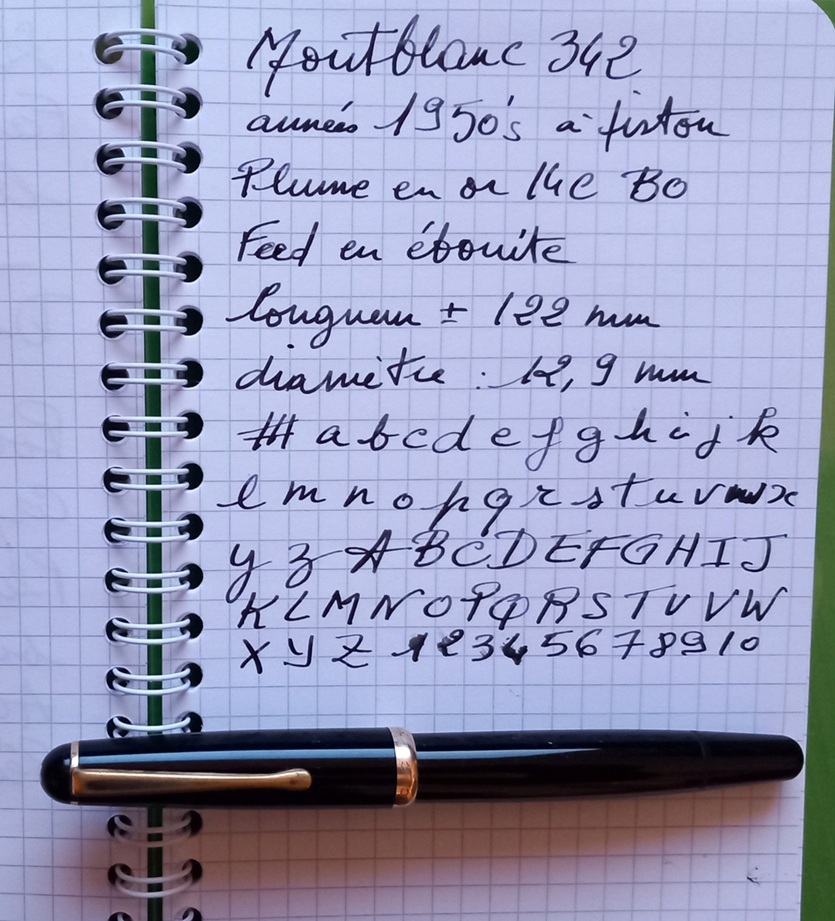 Montblanc 342
années 1950's à fiston
Plume en or 14C BO
Feed en ébonite
longueur ± 122 mm
diamètre : 12,9 mm
# a b c d e f g h i j k
l m n o p q r s t u v w x
y z A B C D E F G H I J
K L M N O P Q R S T U V W
X Y Z 1 2 3 4 5 6 7 8 9 10